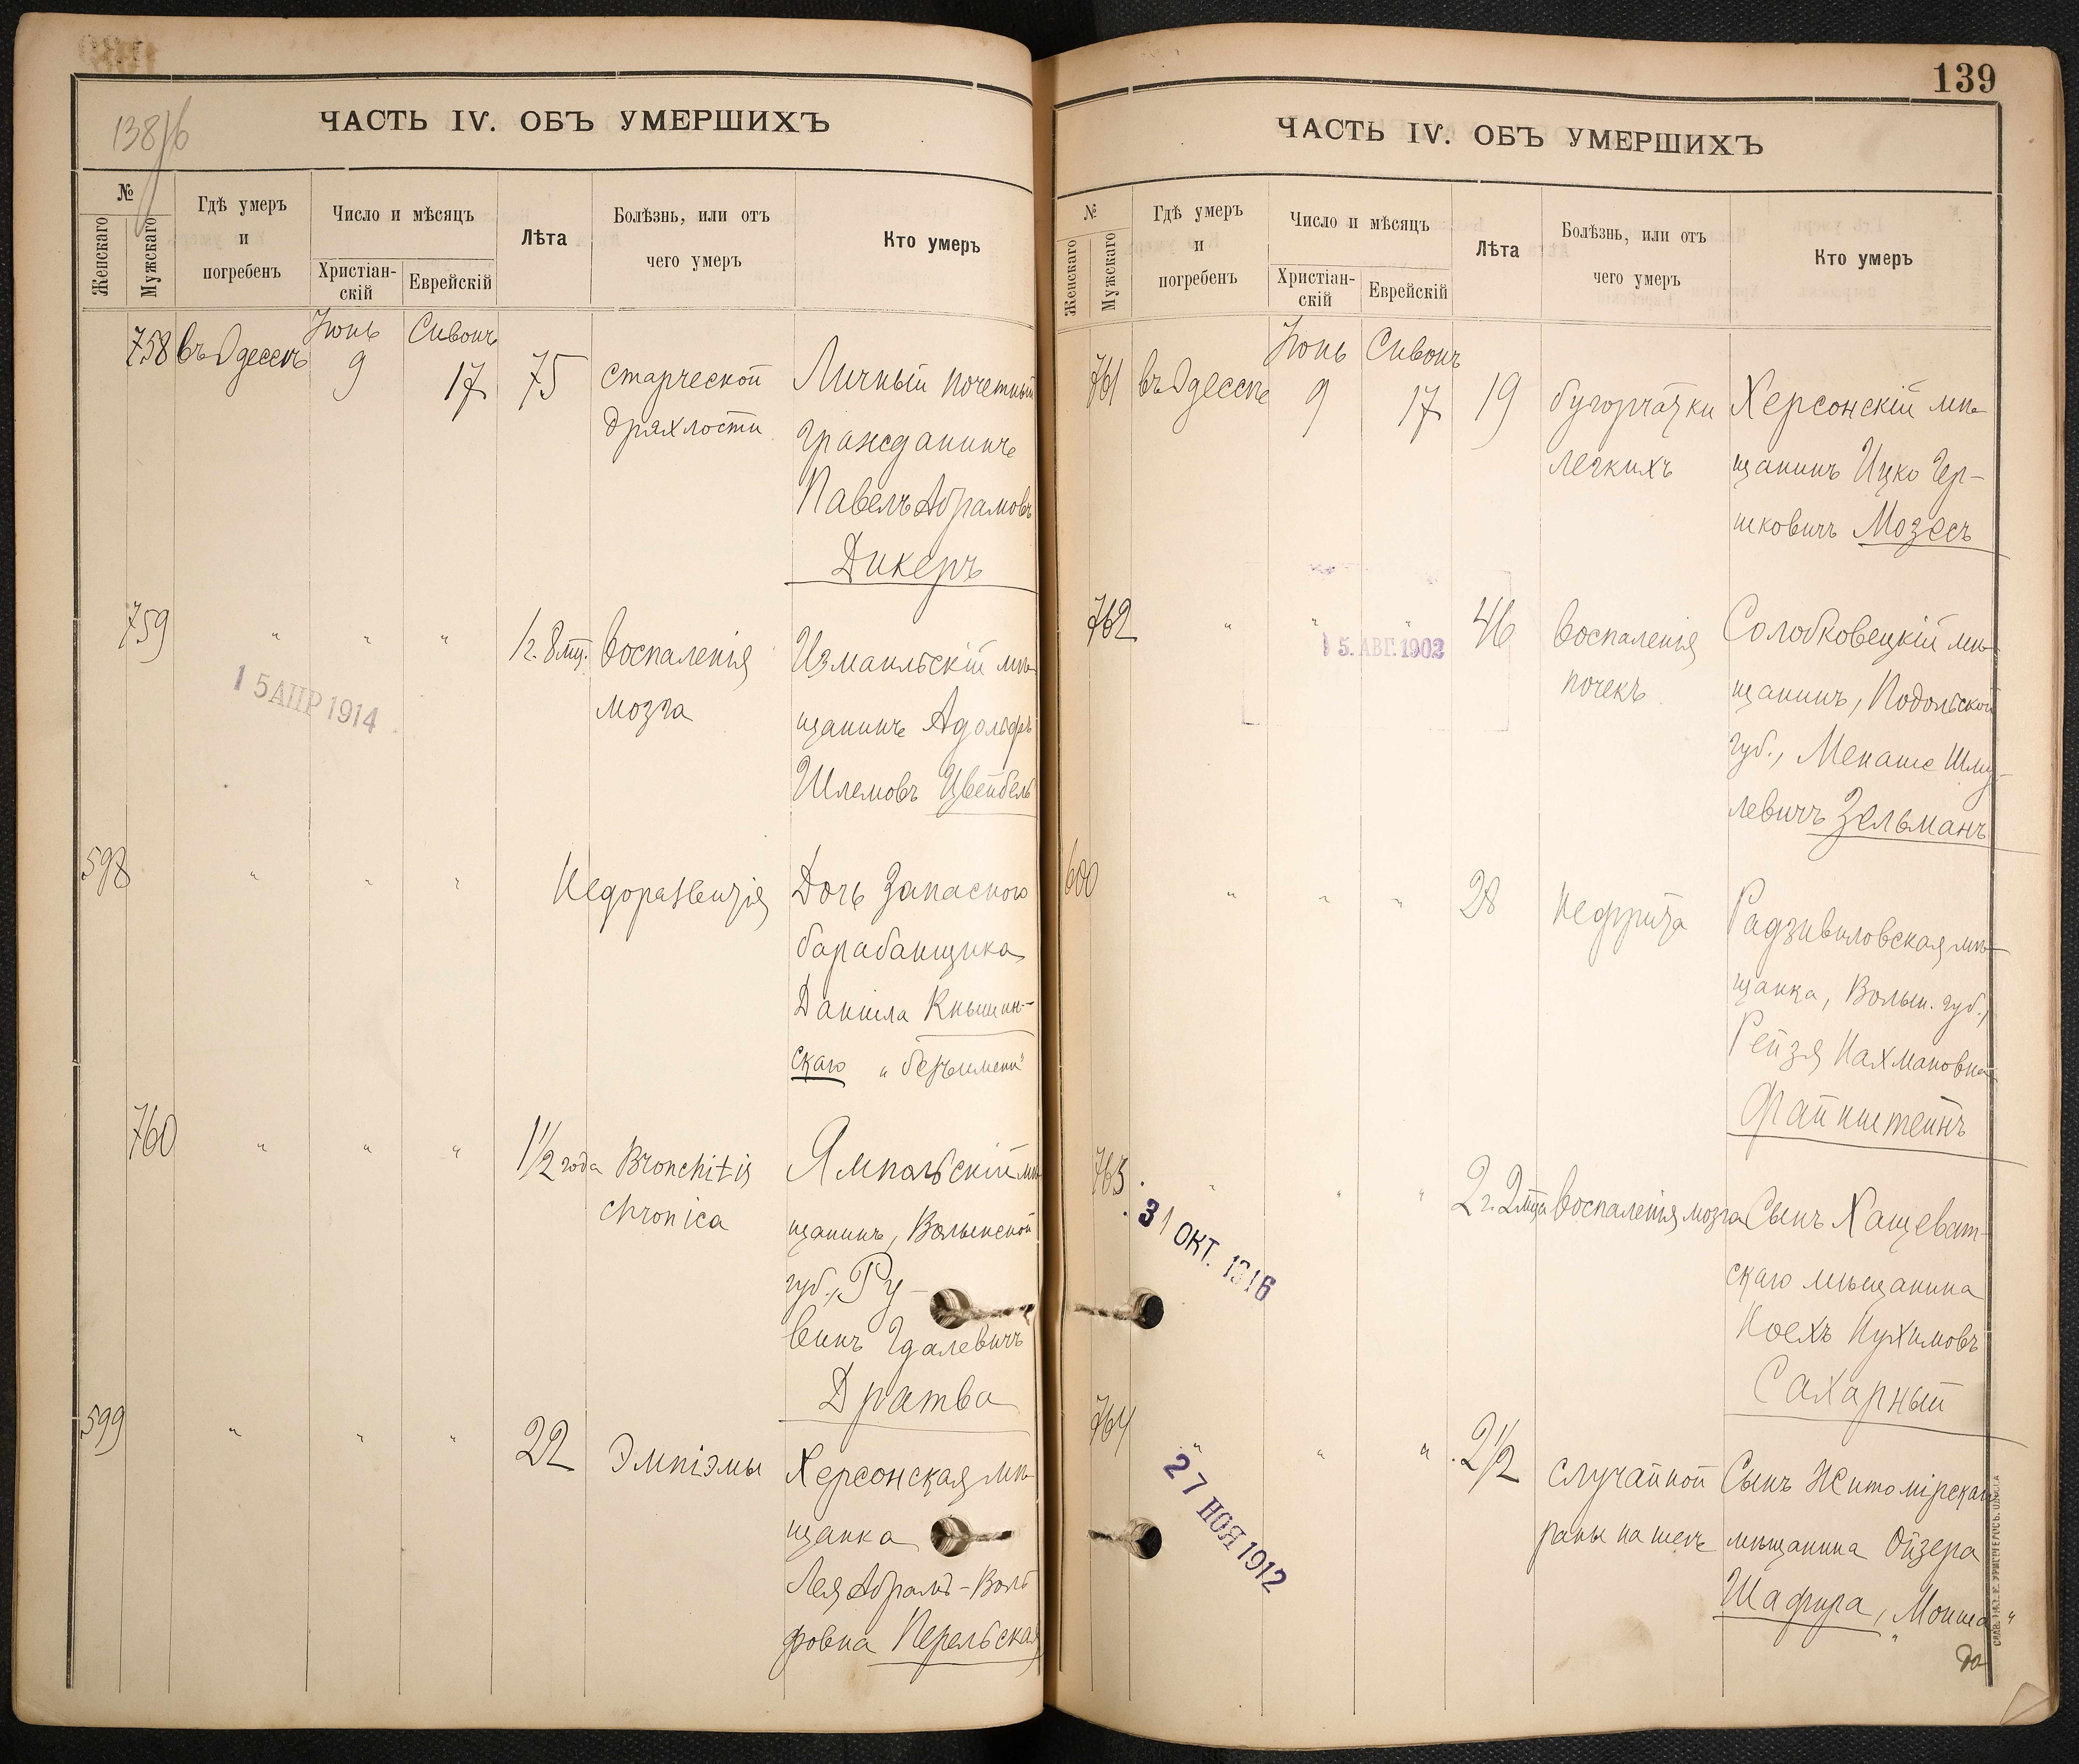 138/б
ЧАСТЬ IV. ОБЪ УМЕРШИХЪ
№
Женскаго
Мужскаго
Гдѣ умеръ
и
погребенъ
Число и мѣсяцъ
Христіан-
скій
Еврейскій
Лѣта
Болѣзнь, или отъ
чего умеръ
Кто умеръ
758 въ Одессѣ Іюнь 9 Сивонъ 17 75
старческой
дряхлости
Личный почетный
гражданинъ
Павелъ Абрамовъ
Дикеръ
759 " " " 1 г. 8 мц. воспаленія
мозга
Измаильскій мѣ-
щанинъ Адольфъ
Шлемовъ Цвейбель
15 АПР 1914
598 " " " Недоразвитія
Дочь запаснаго
барабанщика
Даніила Кнышин-
скаго „безъимени"
760 " " " 1½ года Bronchitis
chronica
Ямпольскій мѣ-
щанинъ, Волынской
губ., Ру-
винъ Гдалевичъ
Дратва
599 " " " 22 Эмпіэмы
Херсонская мѣ-
щанка
Лея Абрамъ-Воль-
фовна Перельская
139
ЧАСТЬ IV. ОБЪ УМЕРШИХЪ
№
Женскаго
Мужскаго
Гдѣ умеръ
и
погребенъ
Число и мѣсяцъ
Христіан-
скій
Еврейскій
Лѣта
Болѣзнь, или отъ
чего умеръ
Кто умеръ
761 въ Одессѣ Іюнь 9 Сивонъ 17 19
бугорчатки
легкихъ
Херсонскій мѣ-
щанинъ Ицко Гер-
шковичъ Мозесъ
762 " " " 46 воспаленія
почекъ
Солобковецкій мѣ-
щанинъ, Подольской
губ., Менаше Шму-
левичъ Зельманъ
15. АВГ. 1902
600 " " " 28 нефрита
Радзивиловская мѣ-
щанка, Волын. губ.,
Рейзя Нахмановна
Файнштейнъ
763 " " " 2 г. 2 мца воспаленія мозга
Сынъ Хащеват-
скаго мѣщанина
Ноехъ Нухимовъ
Сахарный
31 ОКТ. 1916
764 " " " 2½ случайной
раны на шеѣ
Сынъ Житомірскаго
мѣщанина Ойзера
Шафира, „Моиша"
27 НОЯ 1912